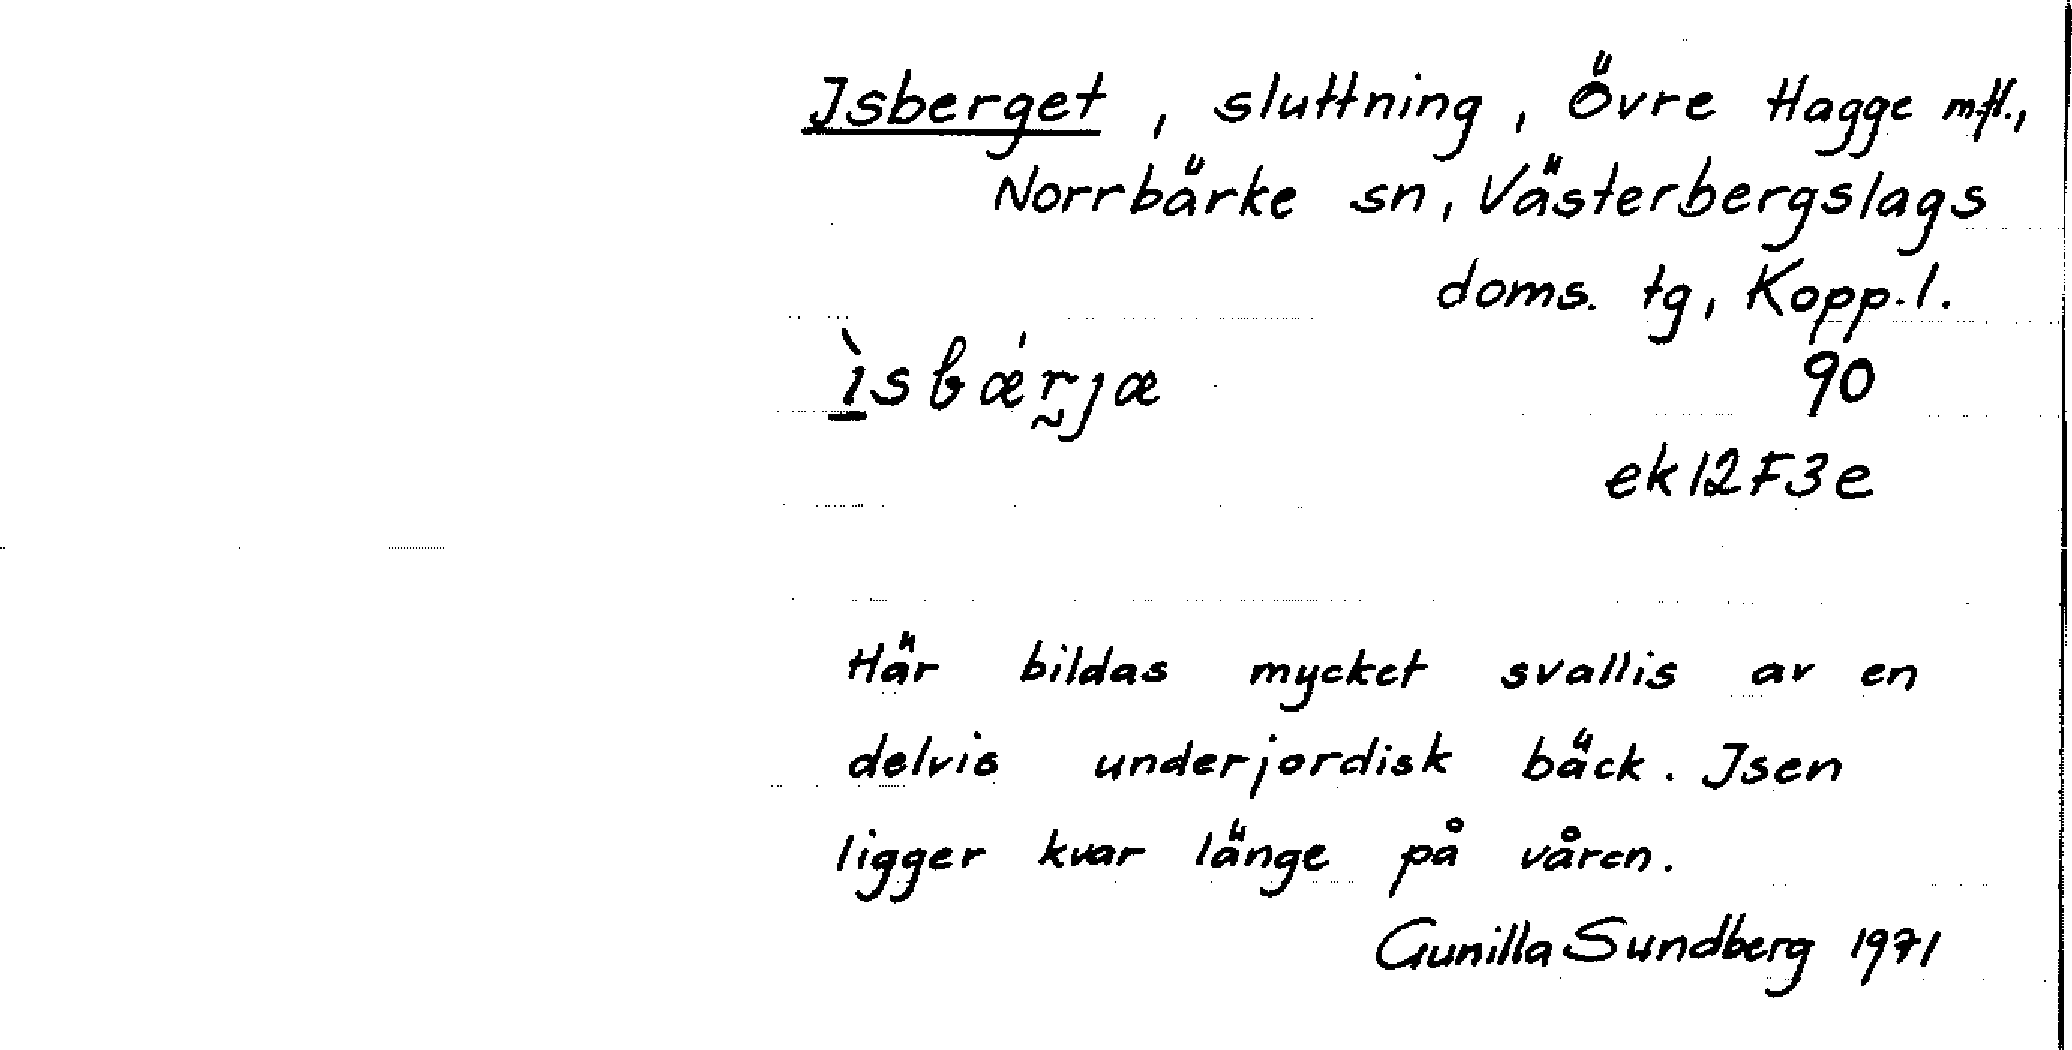 Isberget, sluttning, Övre Hagge m.fl.,
Norrbärke sn, Västerbergslags
doms. tg, Kopp. l.
ìsbǽr̰jæ 90
ek12F3e
Här bildas mycket svallis av en
delvis underjordisk bäck. Isen
ligger kvar länge på våren.
Gunilla Sundberg 1971